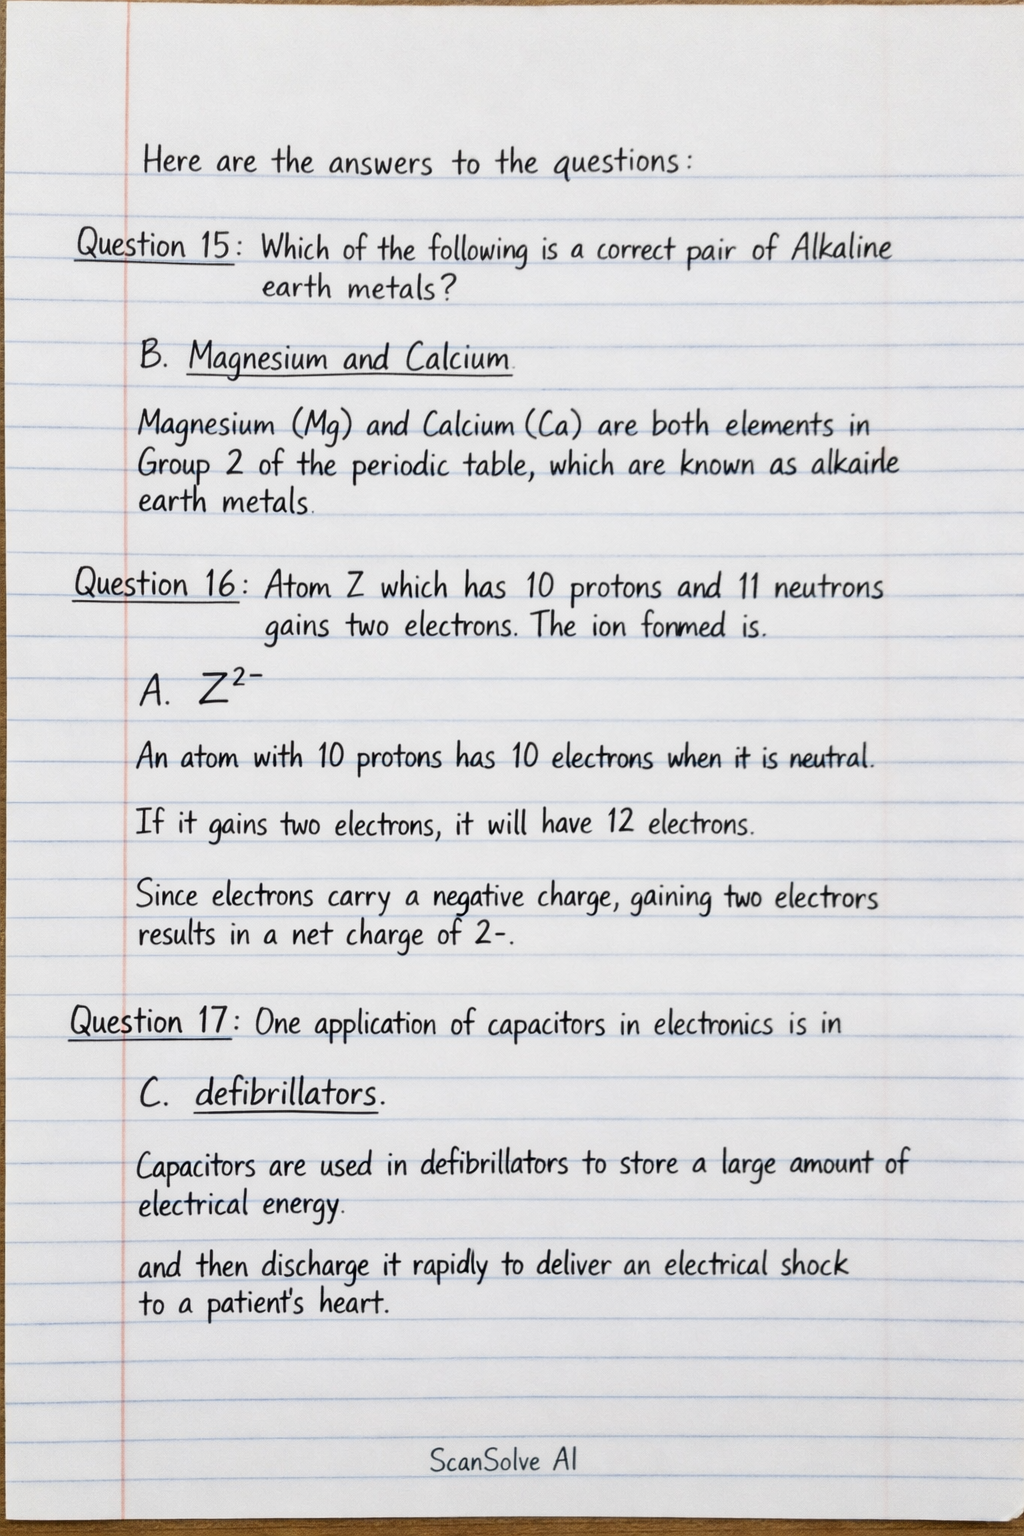 Here are the answers to the questions:
Question 15: Which of the following is a correct pair of Alkaline
earth metals?
B. Magnesium and Calcium.
Magnesium (Mg) and Calcium (Ca) are both elements in
Group 2 of the periodic table, which are known as alkairle
earth metals.
Question 16: Atom Z which has 10 protons and 11 neutrons
gains two electrons. The ion fonmed is.
A. Z²⁻
An atom with 10 protons has 10 electrons when it is neutral.
If it gains two electrons, it will have 12 electrons.
Since electrons carry a negative charge, gaining two electrors
results in a net charge of 2-.
Question 17: One application of capacitors in electronics is in
C. defibrillators.
Capacitors are used in defibrillators to store a large amount of
electrical energy.
and then discharge it rapidly to deliver an electrical shock
to a patient's heart.
ScanSolve AI